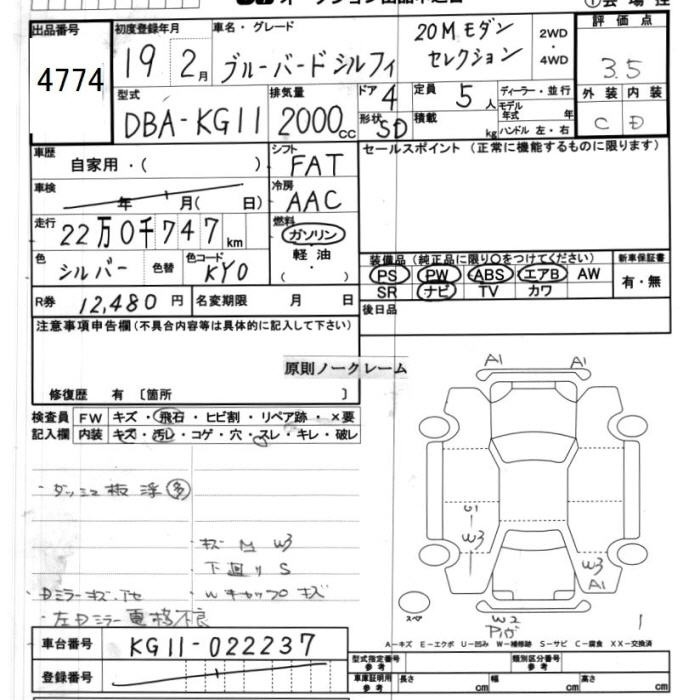 出品番号
4774
初度登録年月
19 2月
車名・グレード
ブルーバードシルフィ
20Mモダン
セレクション
2WD
・
4WD
評価点
3.5
外装 内装
C D
型式
DBA-KG11
排気量
2000cc
ドア 4
形状 SD
定員 5人
積載 kg
ディーラー・並行
モデル年式 年
ハンドル 左・右
車歴
自家用・( )
シフト
FAT
セールスポイント(正常に機能するものに限ります)
車検
年 月( 日)
冷房
AAC
走行
22万0千747km
燃料
ガソリン
軽油
・( )
色
シルバー
色替
色コード
KY0
装備品(純正品に限り○をつけてください)
PS PW ABS エアB AW
SR ナビ TV カワ
新車保証書
有・無
R券 12,480円
名変期限 月 日
後日品
注意事項申告欄(不具合内容等は具体的に記入して下さい)
原則ノークレーム
修復歴 有〔箇所 〕
検査員
記入欄
FW キズ・飛石・ヒビ割・リペア跡・×要
内装 キズ・汚レ・コゲ・穴・スレ・キレ・破レ
・ダッシュ板浮多
・キズ M W3
・下廻り S
・Dミラーキズ
・Wキャップ キズ
・左Dミラー電格不良
A1
A1
W3
W3
A1
W2
スペア
A-キズ E-エクボ U-凹み W-補修跡 S-サビ C-腐食 XX-交換済
車台番号
KG11-022237
登録番号
型式指定番号
参考
類別区分番号
参考
車庫証明用
参考
長さ cm
幅 cm
高さ cm